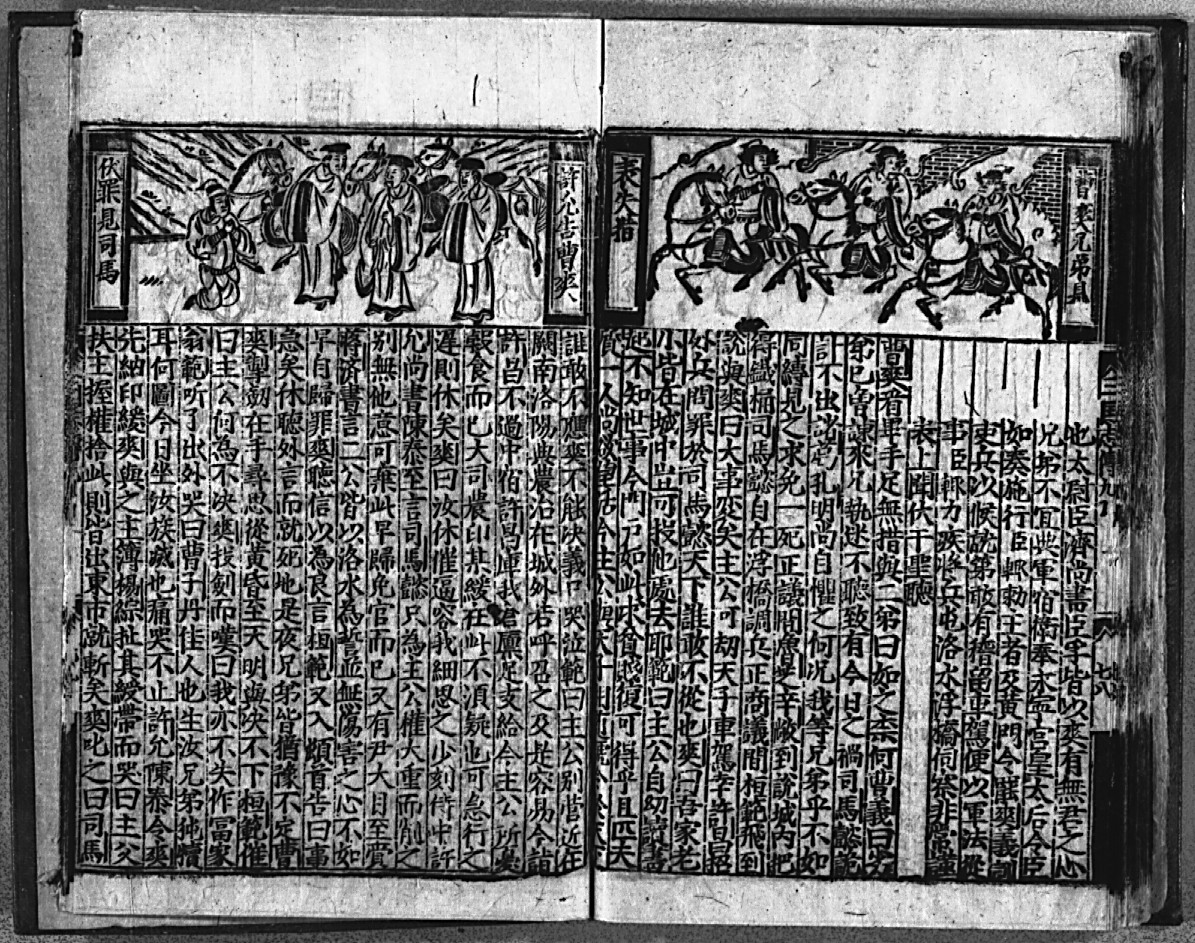 曹爽兄弟見
表失措
也太尉臣濟尚書臣孚皆以爽有無君之心
兄弟不宜典軍宿衛奉永寧宮皇太后令臣
如奏施行臣輒勅主者及黃門令罷爽義訓
吏兵以候就第敢有稽留車駕便以軍法從
事臣輒力疾將兵屯洛水浮橋伺察非常謹
表上聞伏干聖聽
曹爽看畢手足無措與二弟曰如之柰何曹義曰劣
弟已曾諫來兄執迷不聽致有今日之禍司馬懿詭
計不出諸葛孔明尚自懼之何况我等兄弟乎不如
同縛見之求免一死正議間魯芝辛敞到說城內把
得鐵桶司馬懿自在浮橋調兵正商議間桓範飛到
說與爽曰大事变矣主公可刼天子車駕幸許昌招
外兵問罪於司馬懿天下誰敢不從也爽曰吾家老
小皆在城中豈可投他處去耶範曰主公自幼讀書
不知世事今門戶如此求負賤復可得乎且匹夫
質一人尚欲望活今主公與天子相隨
誰敢不應爽不能决議只哭泣範曰主公别营近在
闕南洛陽典農治在城外若呼召之及是容易今詣
許昌不過中宿許昌庫我倉廩足支給今主公所憂
穀食而已大司農印某綬在此不須疑也可急行之
遲則休矣爽曰汝休催逼容我細思之少刻侍中許
允尚書陳泰至言司馬懿只為主公權大重而削之
别無他意可雍此早歸免官而已又有尹大目至賫
蔣濟書言二公皆以洛水為誓並無傷害之心不如
早自歸罪爽聽信以為良言桓範又入頓首告曰事
急矣休聽外言而就死地是夜兄弟皆猶豫不定曹
爽掣劍在手尋思從黃昏至天明與决不下桓範催
曰主公何為不决爽投劍而嘆曰我亦不失作富家
翁範听了出外哭曰曹子丹佳人也生汝兄弟㹠犢
耳何圖今日坐汝族戚也痛哭不止許允陳泰令爽
先納印綬爽與之主簿楊綜扯其綬帶而哭曰主公
扶主握權捨此則皆出東市就斬矣爽叱之曰司馬
許允告曹爽
伏罪見司馬